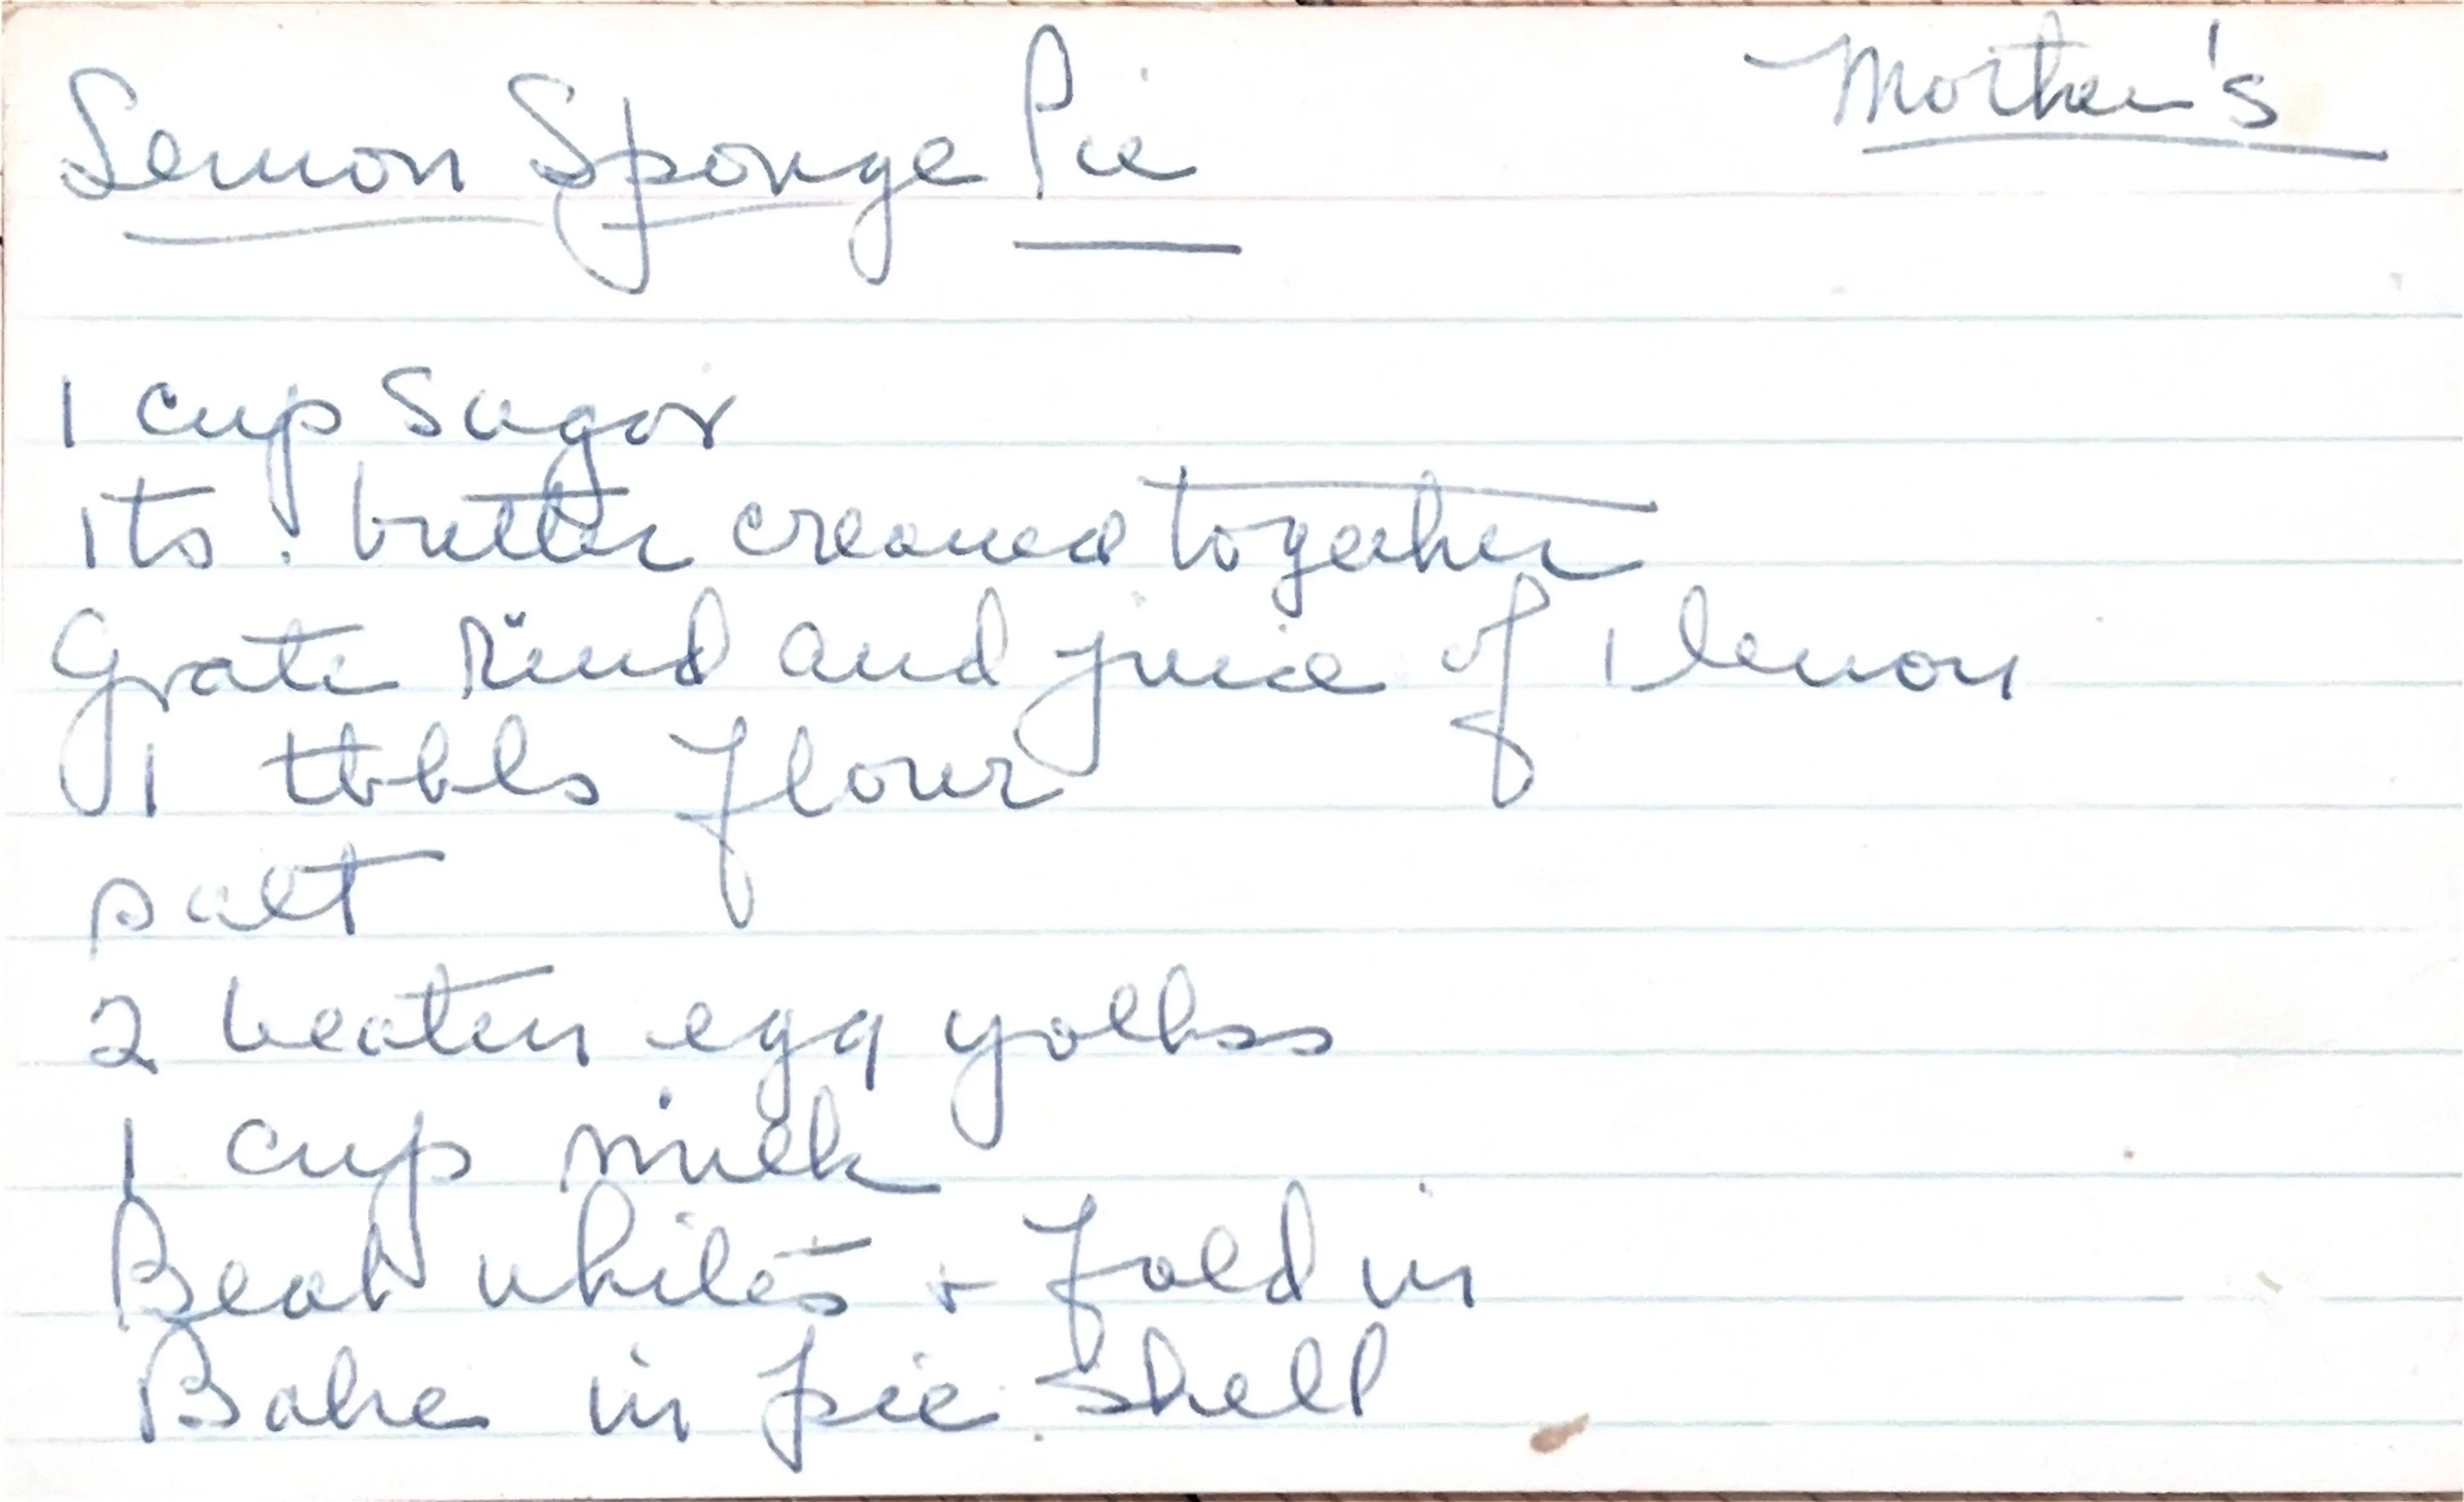 Lemon Sponge Pie
Mother's
1 cup Sugar
1 ts. butter creamed together
Grate Rind and juice of 1 lemon
1 tbbls flour
salt
2 beaten egg yolkss
1 cup milk
Beat whites + fold in
Bake in pie shell